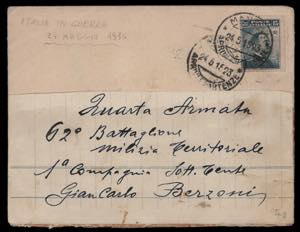 ITALIA IN GUERRA
24 MAGGIO 1915
24.5.15
Quarta Armata
62° Battaglione
Milizia Territoriale
1ª Compagnia Sott. Tente
GianCarlo Berzoni